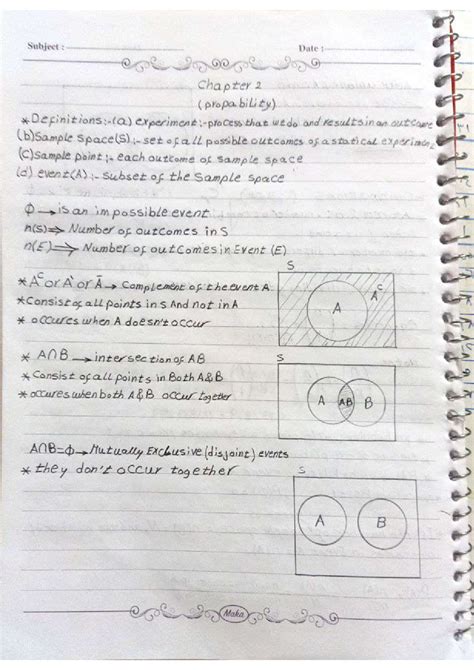 Subject :
Date :
Chapter 2
(propability)
* Definitions:-(a) experiment:-process that we do and results in an outcome
(b)Sample space(S):- set of all possible outcomes of a statical experiment
(C)Sample point:- each outcome of sample space
(d) event(A):- subset of the Sample space
Φ→is an impossible event
n(S)⇒ Number of outcomes in S
n(E)⇒ Number of outcomes in Event (E)
S
* Aᶜ or A' or Ā→ Complement of the event A
A
Aᶜ
* Consist of all points in S And not in A
* occures when A doesn't occur
S
* A∩B → intersection of AB
* Consist of all points in Both A&B
A
AB
B
* occures when both A&B occur together
A∩B=Φ→Mutually Exclusive (disjoint) events
* they don't occur together
S
A
B
Maka